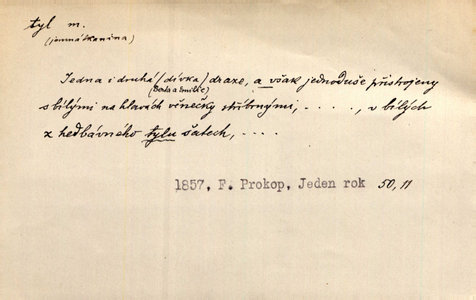 tyl m.
(jemná tkanina)
Jedna i druhá (dívka) draze, a však jednoduše přistrojeny
(Berta a Emilie)
s bílými na hlavách věnečky stříbrnými, . . . . , v bílých
z hedbávného tylu šatech, . . . .
1857, F. Prokop, Jeden rok 50, 11